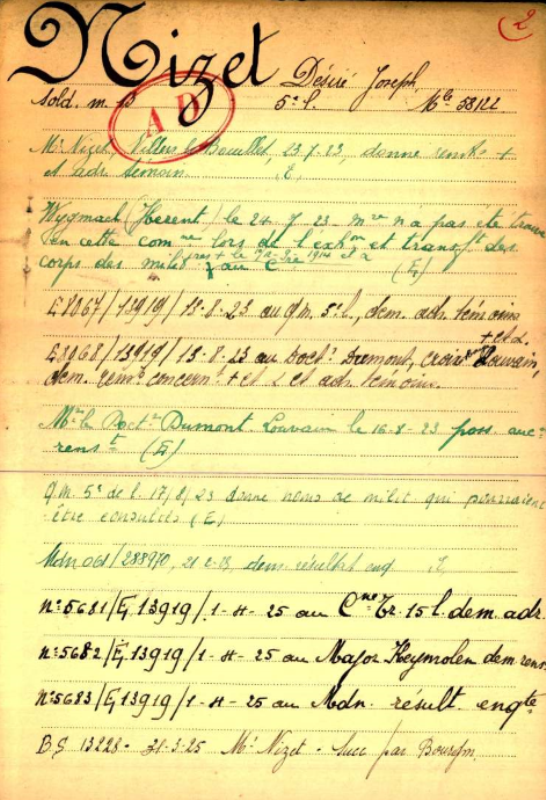 2
Nizet Désiré Joseph
Sold. m. 13 5e l. Mle 58122
A D
Mr Nizet, Villers le Bouillet, 23.7.23, donne rens ts +
et adr. témoin. E,
Wygmael (Herent) le 24. 7. 23. n'a pas été trouvé
en cette com ne lors de l'exh on et transf t des
corps des milit. + au Cre 1914 et
(E)
E8067/13919/13-8-23 au Q.m. 5e l., dem. adr. témoins
+ et d.
E8068/13919/13-8-23 au Doctr Dumont, Louvain,
dem. concernt + et d et adr. témoins.
Mr le Doctr Dumont Louvain le 16-8-23 poss. auc n
renst (E)
Q.M. 5e de l. 17/8/23 donne noms de milit qui pourraient
être consultés (E)
Mdn 061/288970, 21 2 dem. résultat enq. E,
n°5681/E,13919/1-4-25 au Cne Tr. 15 l. dem. adr.
n°5682/E,13919/1-4-25 au Major Heymolen dem rens
n°5683/E,13919/1-4-25 au Mdn. résult. enqte
BS 13228 - 31-3-25 Mr Nizet - Succ par Bourgm.